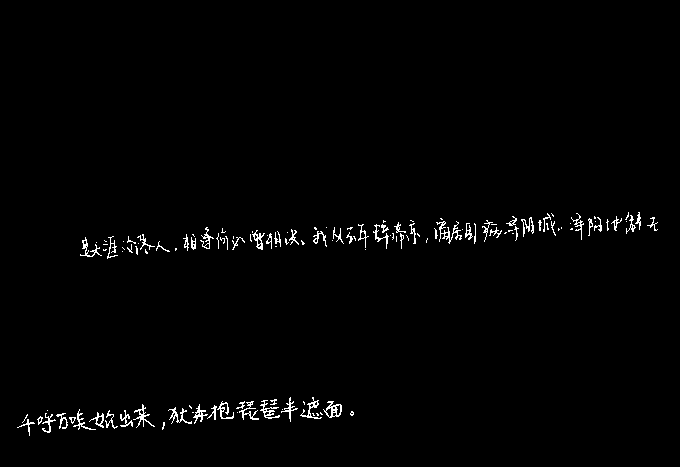 是天涯沦落人，相逢何必曾相识。我从去年辞帝京，谪居卧病浔阳城。浔阳地僻无
千呼万唤始出来，犹抱琵琶半遮面。